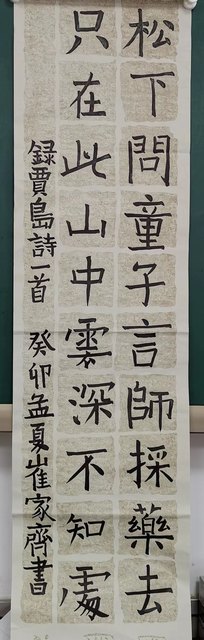 松下問童子言師採藥去
只在此山中雲深不知處
録賈島詩一首 癸卯孟夏崔家齊書